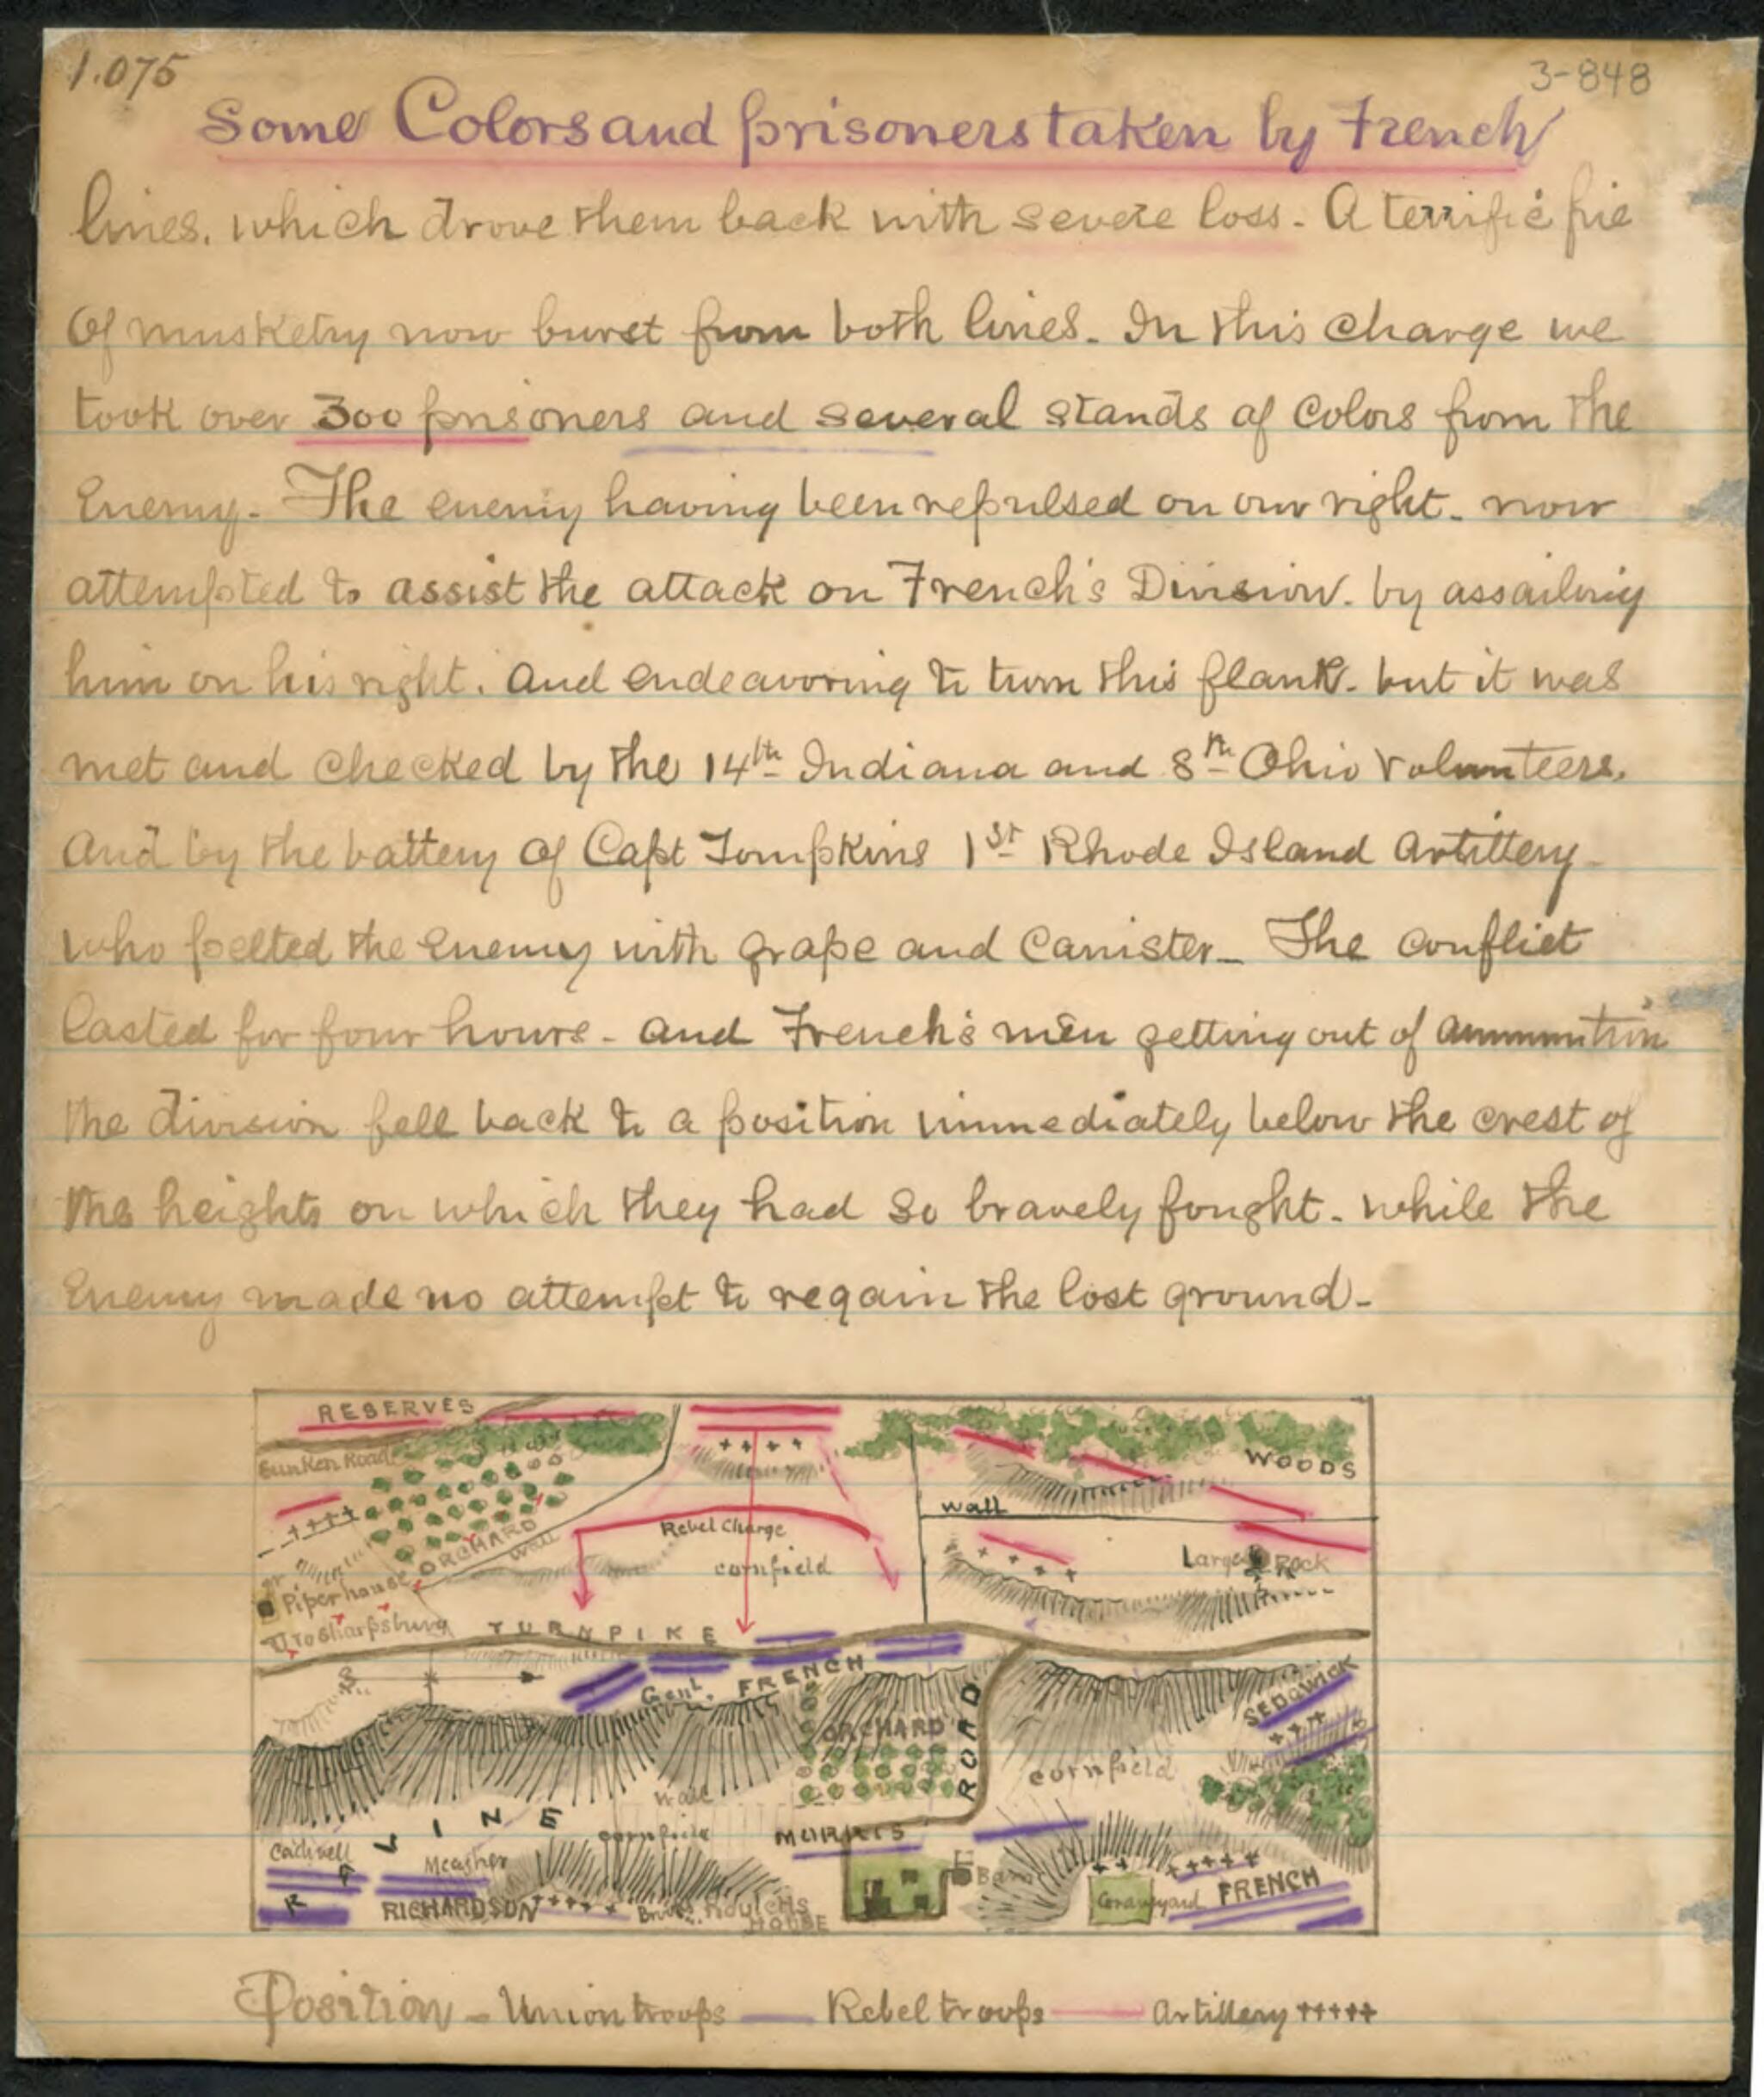 1.075
3-848
Some Colors and prisoners taken by French
lines. which drove them back with severe loss - A terrific fire
Of musketry now burst from both lines - In this charge we
took over 300 prisoners and several stands of Colors from the
Enemy - The enemy having been repulsed on our right - now
attempted to assist the attack on French's Division. by assailing
him on his right. And endeavoring to turn this flank - but it was
met and checked by the 14th Indiana and 8th Ohio Volunteers.
And by the battery of Capt Tompkins 1st Rhode Island Artillery -
who pelted the Enemy with grape and Canister - The conflict
lasted for four hours - and French's men getting out of ammunition
the division fell back to a position immediately below the crest of
the heights on which they had so bravely fought - while the
Enemy made no attempt to regain the lost ground -
RESERVES
Sunken Road
WOODS
wall
Rebel Charge
ORCHARD
wall
cornfield
Large Rock
Piper house
To Sharpsburg
TURNPIKE
Genl. FRENCH
SEDGWICK
ORCHARD
ROAD
cornfield
wall
LINE
cornfield
MORRIS
Caldwell
Meagher
Barn
RICHARDSON
HOUSE
Graveyard
FRENCH
Position - Union troops — Rebel troops — Artillery +++++